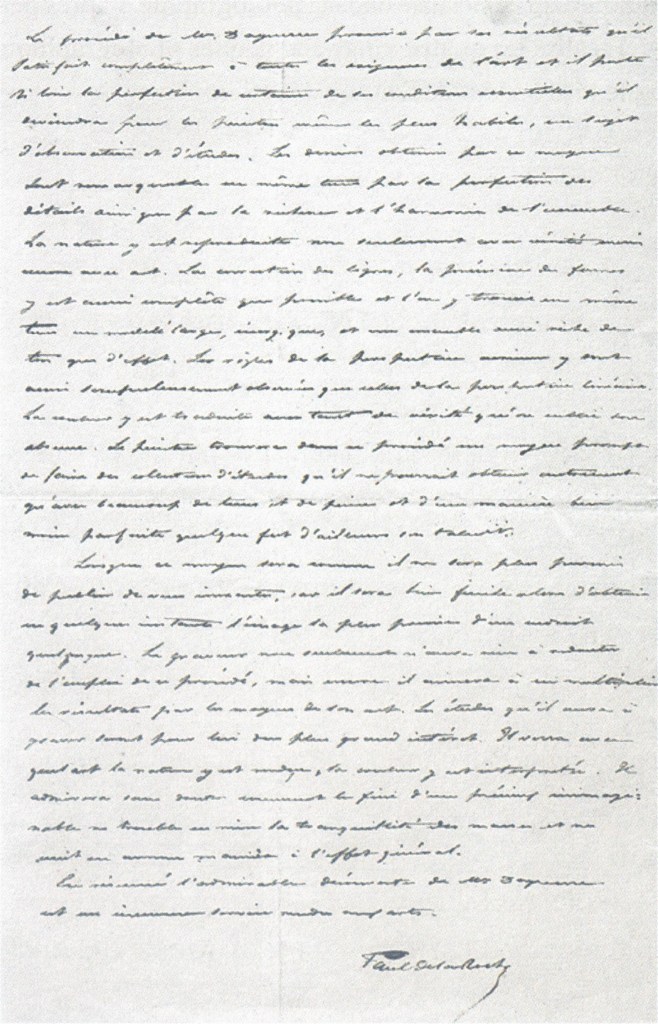 Le procédé de Mr Daguerre prouve par ses résultats qu'il
satisfait complètement à toutes les exigences de l'art et il porte
si loin la perfection de certaines de ses conditions essentielles qu'il
deviendra pour les peintres même les plus habiles, un sujet
d'observation et d'études. Les dessins obtenus par ce moyen
sont remarquables en même tems par la perfection des
détails ainsi que par la richesse et l'harmonie de l'ensemble.
La nature y est reproduite non seulement avec vérité mais
encore avec art. La correction des lignes, la précision des formes
y est aussi complète que possible et l'on y trouve en même
tems un modelé large, énergique, et un ensemble aussi riche de
ton que d'effet. Les règles de la perspective aérienne y sont
aussi scrupuleusement observées que celles de la perspective linéaire.
La couleur y est traduite avec tant de vérité qu'on oublie son
absence. Le peintre trouvera dans ce procédé un moyen prompt
de faire des collections d'études qu'il ne pourrait obtenir autrement
qu'avec beaucoup de tems et de peine et d'une manière bien
moins parfaite quelque fut d'ailleurs son talent.
Lorsque ce moyen sera connu il ne sera plus permis
de publier de vues inexactes, car il sera bien facile alors d'obtenir
en quelques instants l'image la plus précise d'un endroit
quelconque. Le graveur non seulement n'aura rien à redouter
de l'emploi de ce procédé, mais encore il arrivera à en multiplier
les résultats par les moyens de son art. Les études qu'il aura à
graver seront pour lui du plus grand intérêt. Il verra avec
quel art la nature y est rendue, la couleur y est interprétée. Il
admirera sans doute comment le fini d'un précieux inimagi=
nable ne trouble en rien la tranquillité des masses et ne
nuit en aucune manière à l'effet général.
En résumé l'admirable découverte de Mr Daguerre
est un immense service rendu aux arts.
Paul Delaroche